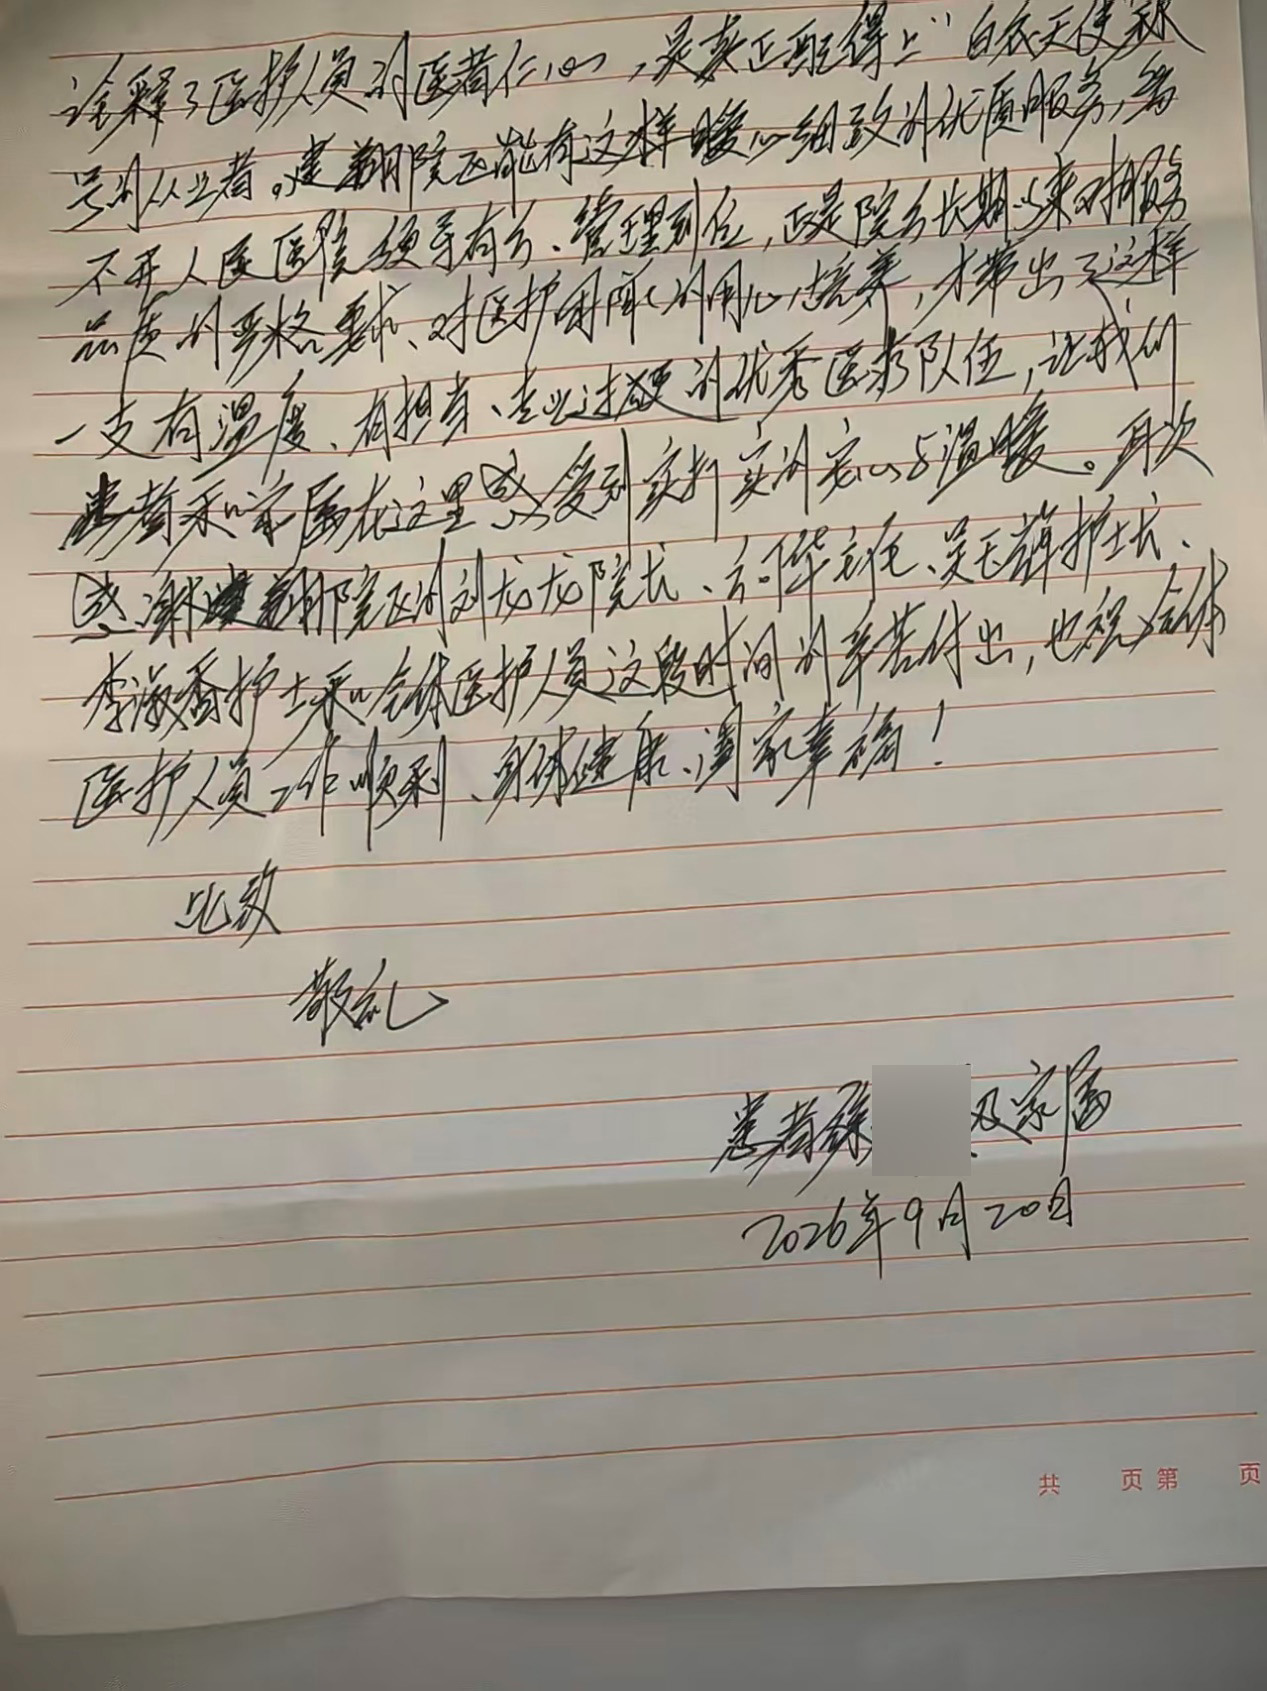 诠释了医护人员的医者仁心，是真正配得上"白衣天使"称
号的从业者。建翔院区能有这样暖心细致的优质服务，离
不开人民医院领导有方、管理到位，正是院方长期以来对服务
品质的严格要求、对医护团队的用心培养，才带出了这样
一支有温度、有担当、专业过硬的优秀医疗队伍，让我们
患者和家属在这里感受到实打实的安心与温暖。再次
感谢建翔院区的刘龙龙院长、华主任、吴玉萍护士长、
李淑香护士和全体医护人员这段时间的辛苦付出，也祝全体
医护人员工作顺利、身体健康、阖家幸福！
此致
敬礼
患者徐 及家属
2026年9月20日
共 页 第 页